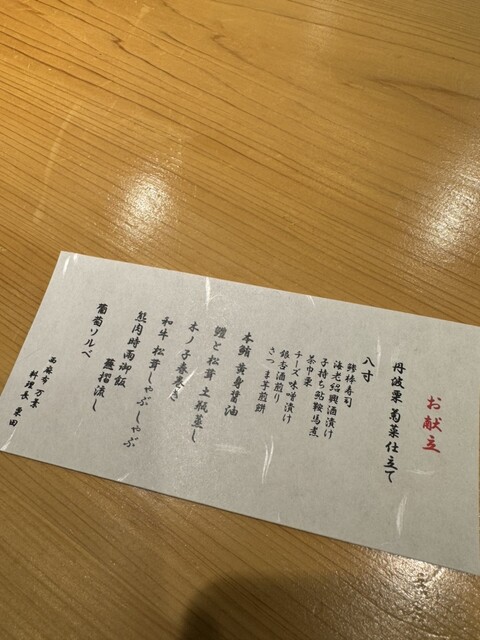 お献立
丹波栗 菊菜仕立て
八寸
鯖棒寿司
海老紹興酒漬け
子持ち鮎鞍馬煮
茶巾栗
チーズ味噌漬け
銀杏酒煎り
さつま芋煎餅
本鮪 黄身醤油
鱧と松茸 土瓶蒸し
木ノ子春巻き
和牛 松茸しゃぶしゃぶ
熊肉時雨御飯
摺流し
葡萄ソルベ
西麻布 万
料理長 栗田